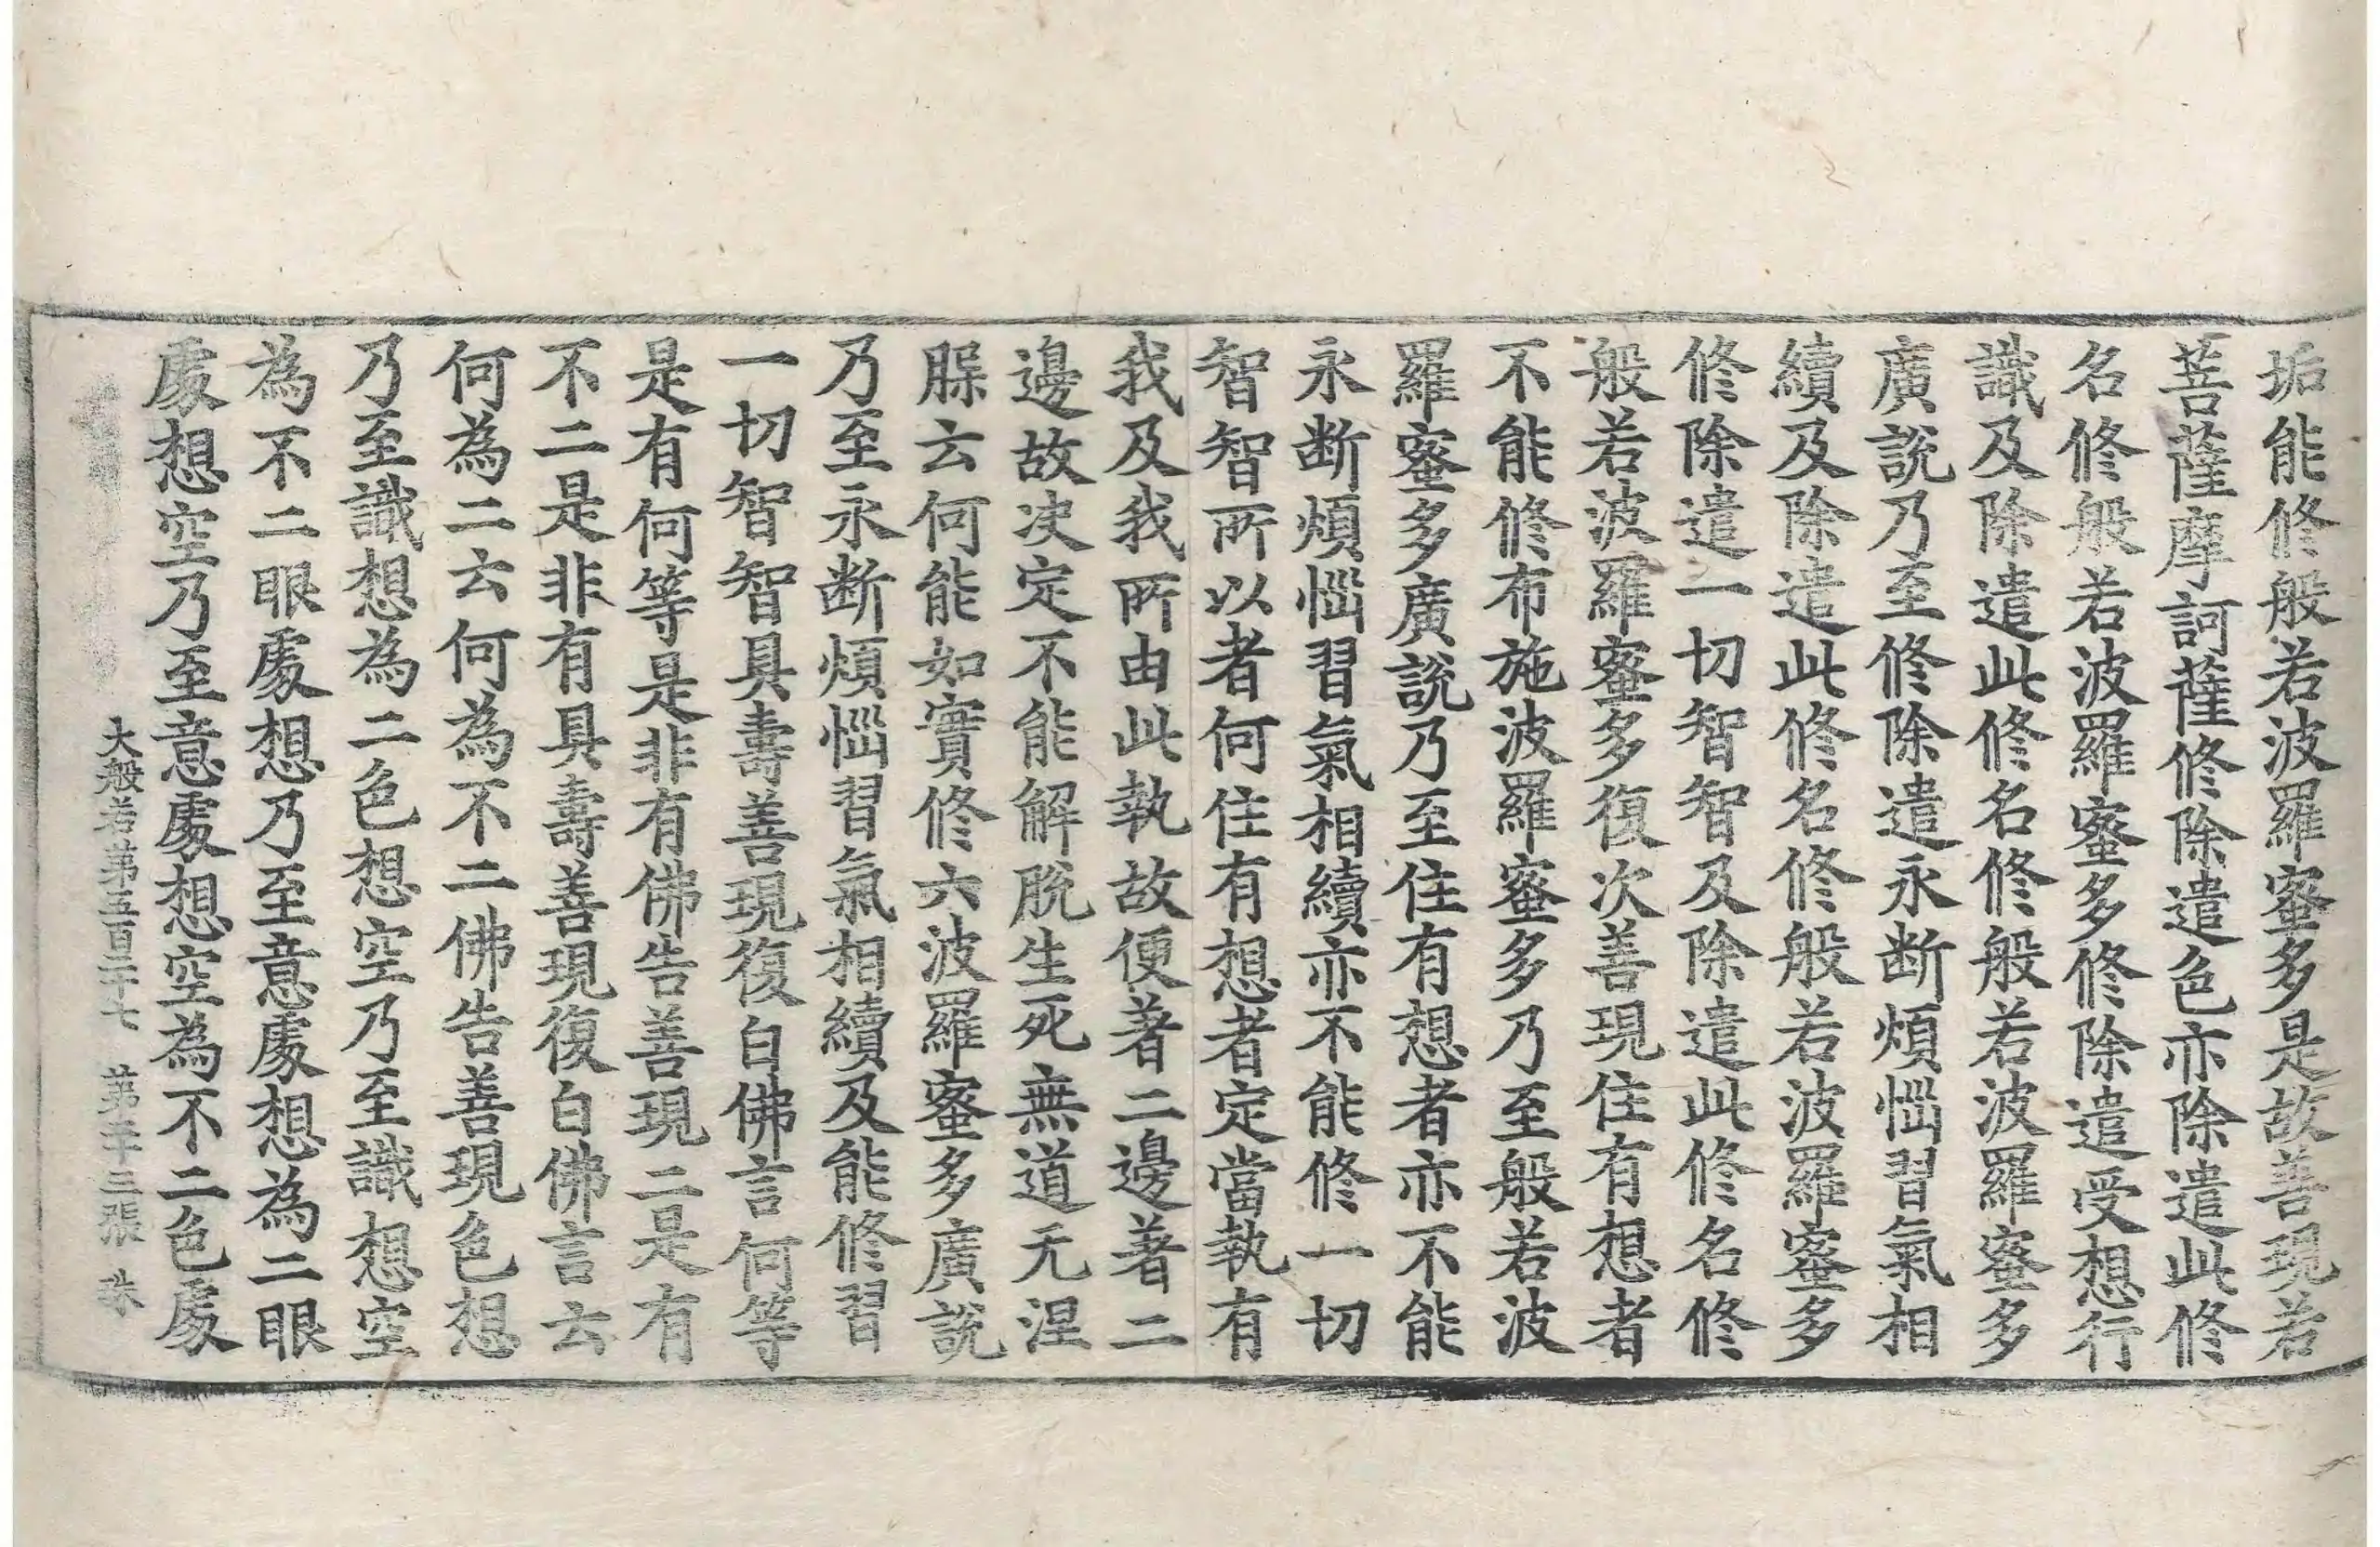 垢能修般若波羅蜜多是故善現若
菩薩摩訶薩修除遣色亦除遣此修
名修般若波羅蜜多修除遣受想行
識及除遣此修名修般若波羅蜜多
廣說乃至修除遣永斷煩惱習氣相
續及除遣此修名修般若波羅蜜多
修除遣一切智智及除遣此修名修
般若波羅蜜多復次善現住有想者
不能修布施波羅蜜多乃至般若波
羅蜜多廣說乃至住有想者亦不能
永断煩惱習氣相續亦不能修一切
智智所以者何住有想者定當執有
我及我所由此執故便著二邊著二
邊故决定不能解脫生死無道无涅
腂云何能如實修六波羅蜜多廣說
乃至永断煩惱習氣相續及能修習
一切智智具壽善現復白佛言何等
是有何等是非有佛告善現二是有
不二是非有具壽善現復白佛言云
何為二云何為不二佛告善現色想
乃至識想為二色想空乃至識想空
為不二眼處想乃至意處想為二眼
處想空乃至意處想空為不二色處
大般若第五百二十七 第十三張 珠